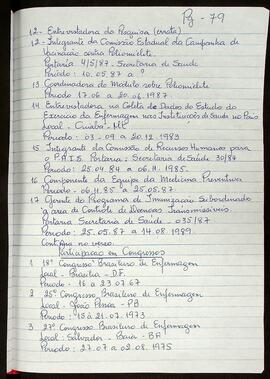 Pg - 79
12 - Entrevistadora da Pesquisa (errata)
12 - Integrante da Comissão Estadual da Campanha de
Vacinação contra Poliomielite
Portaria 4/5/87 - Secretaria de Saúde
Período: 10.05.87 a ?
13 Coordenadora do Módulo sobre Poliomielite
Período - 17.06 a 20.06.1987
14 Entrevistadora na Coleta de Dados do Estudo do
Exercício da Enfermagem nas Instituições de Saúde no País
Local - Cuiabá - MT
Período: 03-09 a 20.12.1983
15 Integrante da Comissão de Recursos Humanos para
o P.A.I.S. Portaria: Secretaria de Saúde 30/87
Período: 25.04.84 a 06.11.1985.
16 Componente da Equipe da Medicina Preventiva
Período - 06.11.85 a 25.05.87
17 Gerente do Programa de Imunização Subordinado
a área de Controle de Doenças Transmissíveis.
Portaria Secretaria de Saúde 035/87
Período: 25.05.87 a 14.08.1989
Continua no verso.
Participação em Congressos
1 18º Congresso Brasileiro de Enfermagem
Local - Brasília - D.F.
Período - 16 a 23.07.67
2 25º Congresso Brasileiro de Enfermagem
Local - João Pessoa - PB
Período - 15 à 21.07.1973
3 27º Congresso Brasileiro de Enfermagem
Local: Salvador - Bahia - BA
Período: 27.07 a 02.08.1975